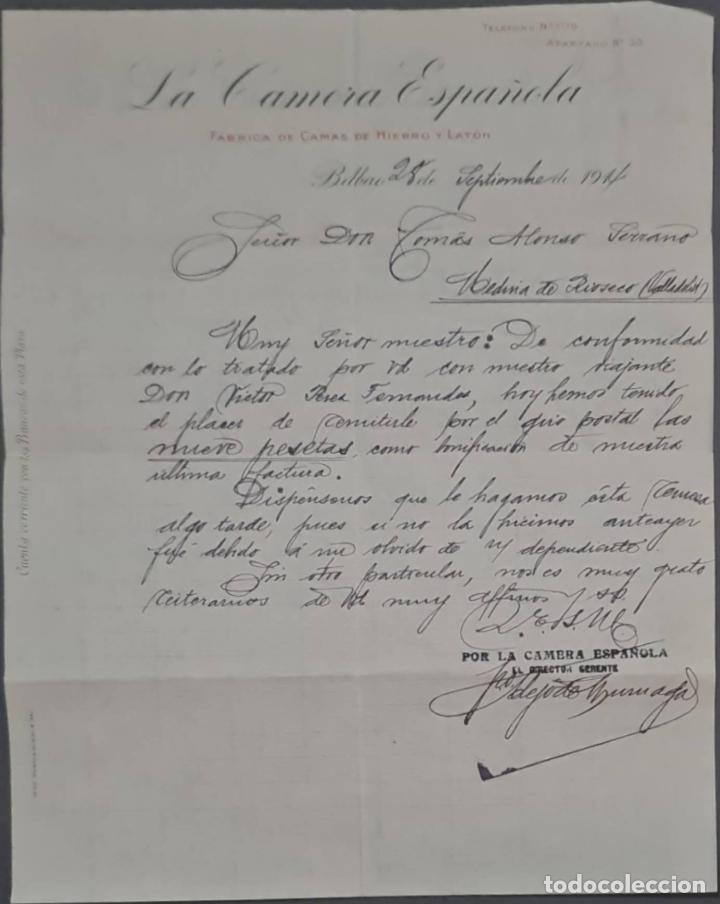 TELÉFONO Nº
APARTADO Nº 30
La Camera Española
FABRICA DE CAMAS DE HIERRO Y LATÓN
Bilbao 28 de Septiembre de 1914
Señor Don Tomás Alonso Serrano
Medina de Rioseco (Valladolid)
Muy Señor nuestro: De conformidad
con lo tratado por Vd con nuestro viajante
Don Victor Perez Fernandez, hoy hemos tenido
el placer de remitirle por el giro postal las
nueve pesetas, como bonificación de nuestra
última factura.
Dispénsenos que le hagamos ésta remesa
algo tarde, pues si no la hicimos anteayer
fué debido á un olvido de dependiente.
Sin otro particular, nos es muy grato
reiterarnos de Vd muy affmos y ss.
Q.E.S.M.
POR LA CAMERA ESPAÑOLA
EL DIRECTOR GERENTE
Cuenta corriente con los Bancos de esta Plaza
todocoleccion